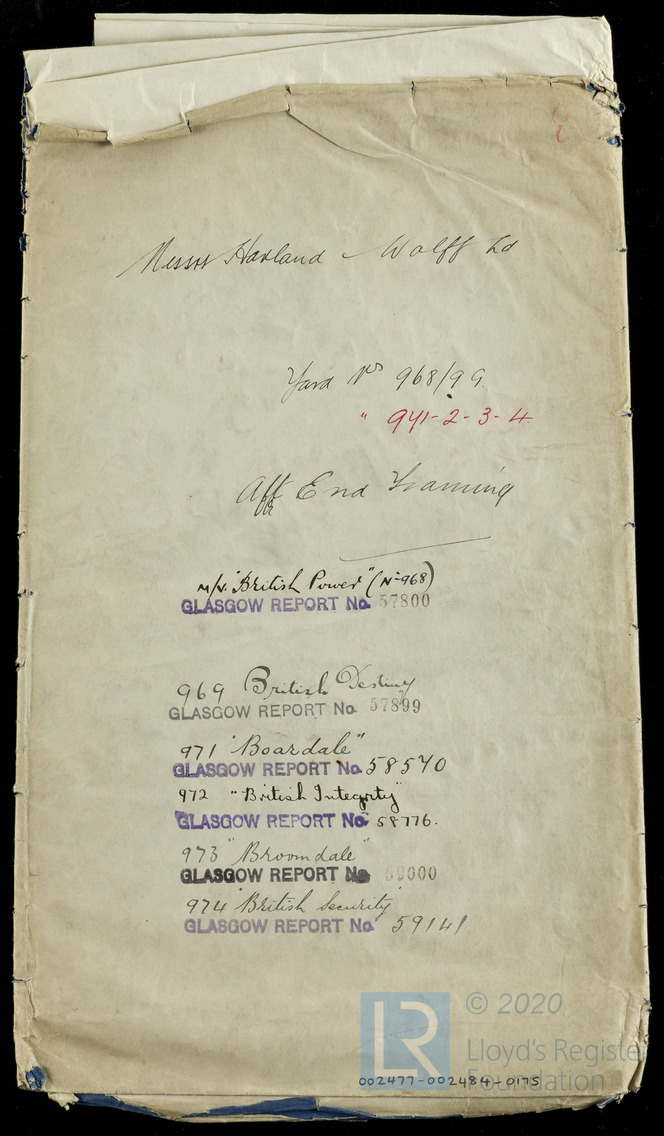 Messrs Harland & Wolff Ld
Yard Nos 968/99
" 971-2-3-4
Aft End Framing
M/V. "British Power" (No 968)
GLASGOW REPORT No. 57800
969 British Destiny
GLASGOW REPORT No. 57899
971 "Boardale"
GLASGOW REPORT No. 58570
972 "British Integrity"
GLASGOW REPORT No. 58776.
973 "Broomdale"
GLASGOW REPORT No. 59000
974 "British Security"
GLASGOW REPORT No. 59141
LR
© 2020
Lloyd's Register
Foundation
002477-002484-0175